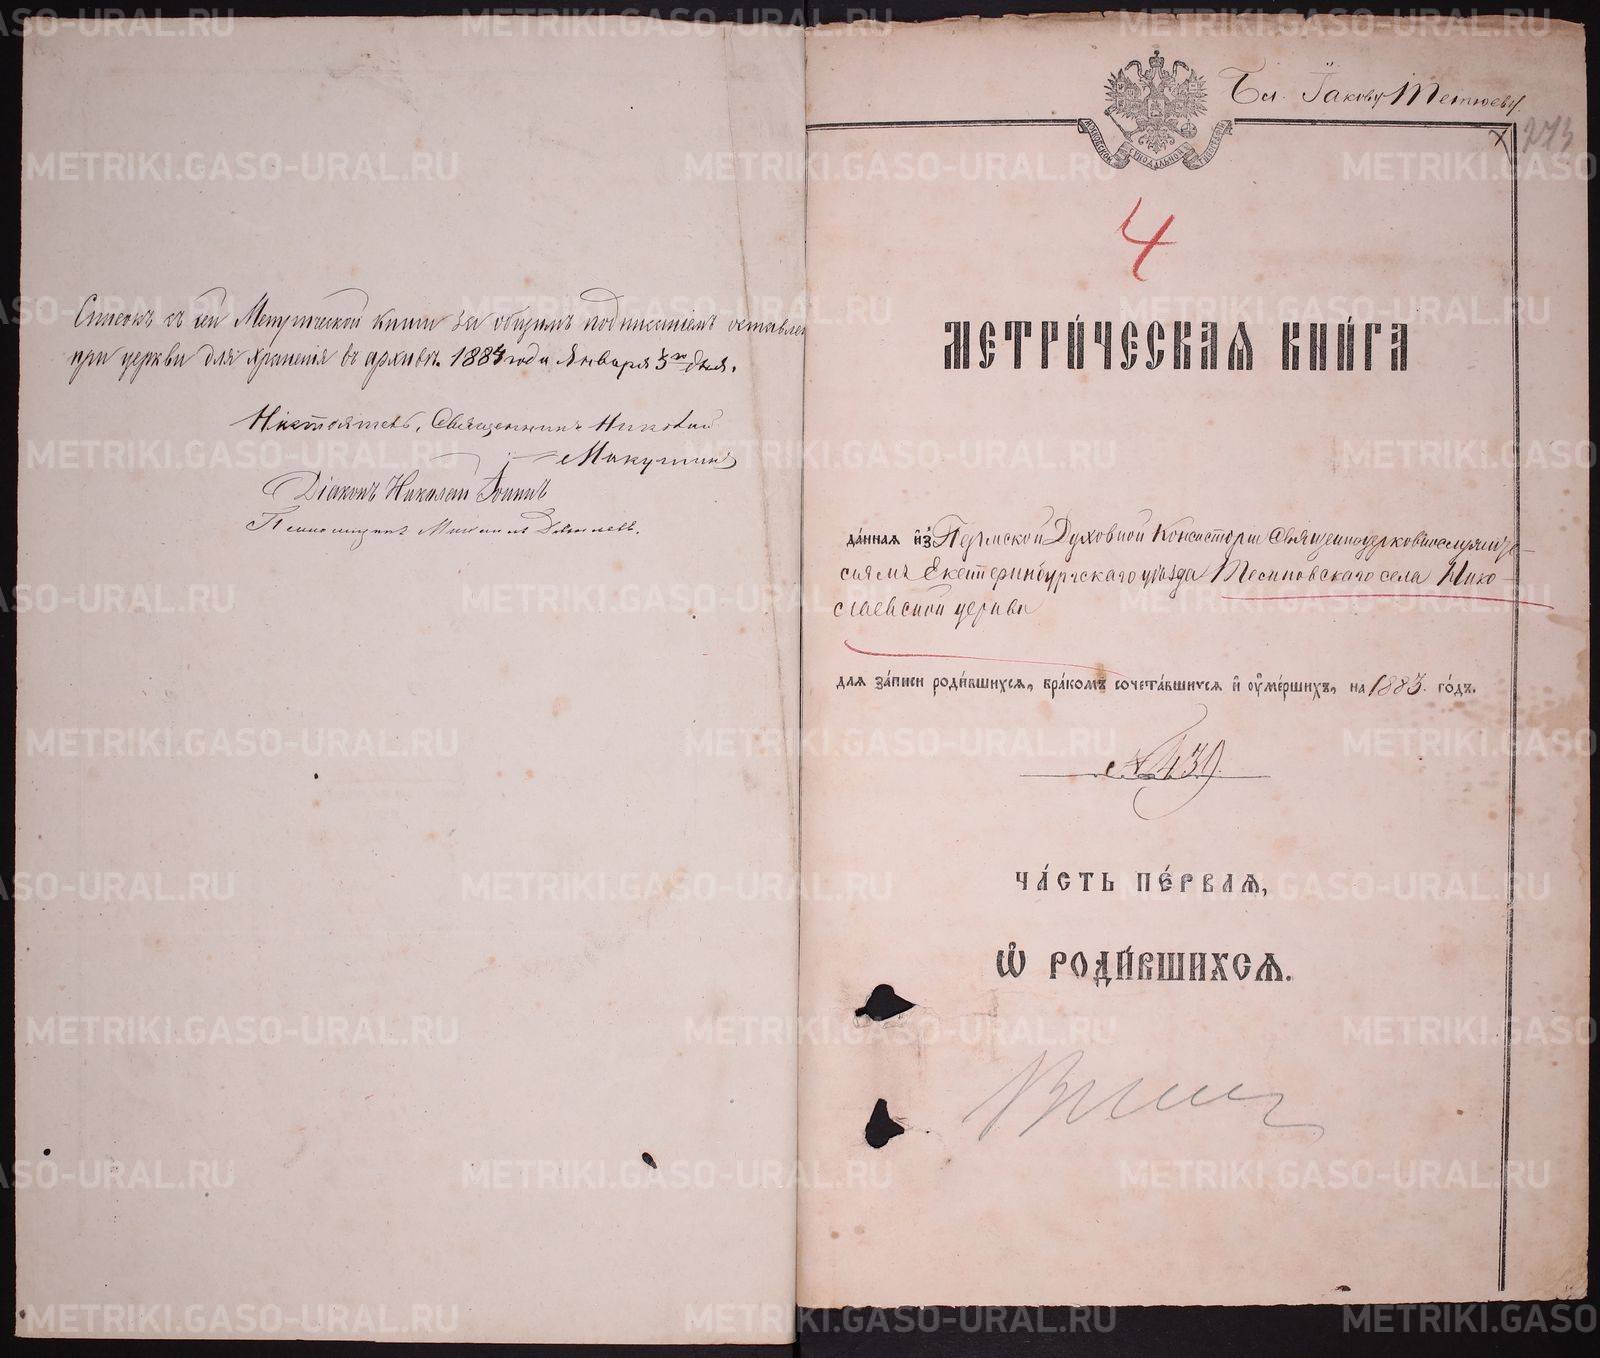 Списокъ съ сей Метрической книги за общимъ подписаніемъ оставленъ
при церкви для храненія въ архивѣ. 1883 года Января 3го дня.
Настоятель, Священникъ Николай
Макушинъ
Діаконъ Николай Тонинъ
Псаломщикъ Михаилъ
Бл. Іакову Тетюеву
МОСКОВСКОЙ СѴНОДАЛЬНОЙ ТИПОГРАФІИ
273
4
МЕТРИ́ЧЕСКАѦ КНИ́ГА
да́нная и҆з̾ Пермской Духовной Консисторіи Священноцерковнослужите-
лямъ Екатеринбургскаго уѣзда Тесиновскаго села Нико-
лаевской церкви
для за́писи роди́вшихся, бра́комъ сочета́вшихся и҆ ᲂу҆ме́ршихъ, на 1883. го́дъ.
№ 439.
ЧА́СТЬ ПЕ́РВАѦ,
Ѽ РОДИ́ВШИХСѦ.
METRIKI.GASO-URAL.RU